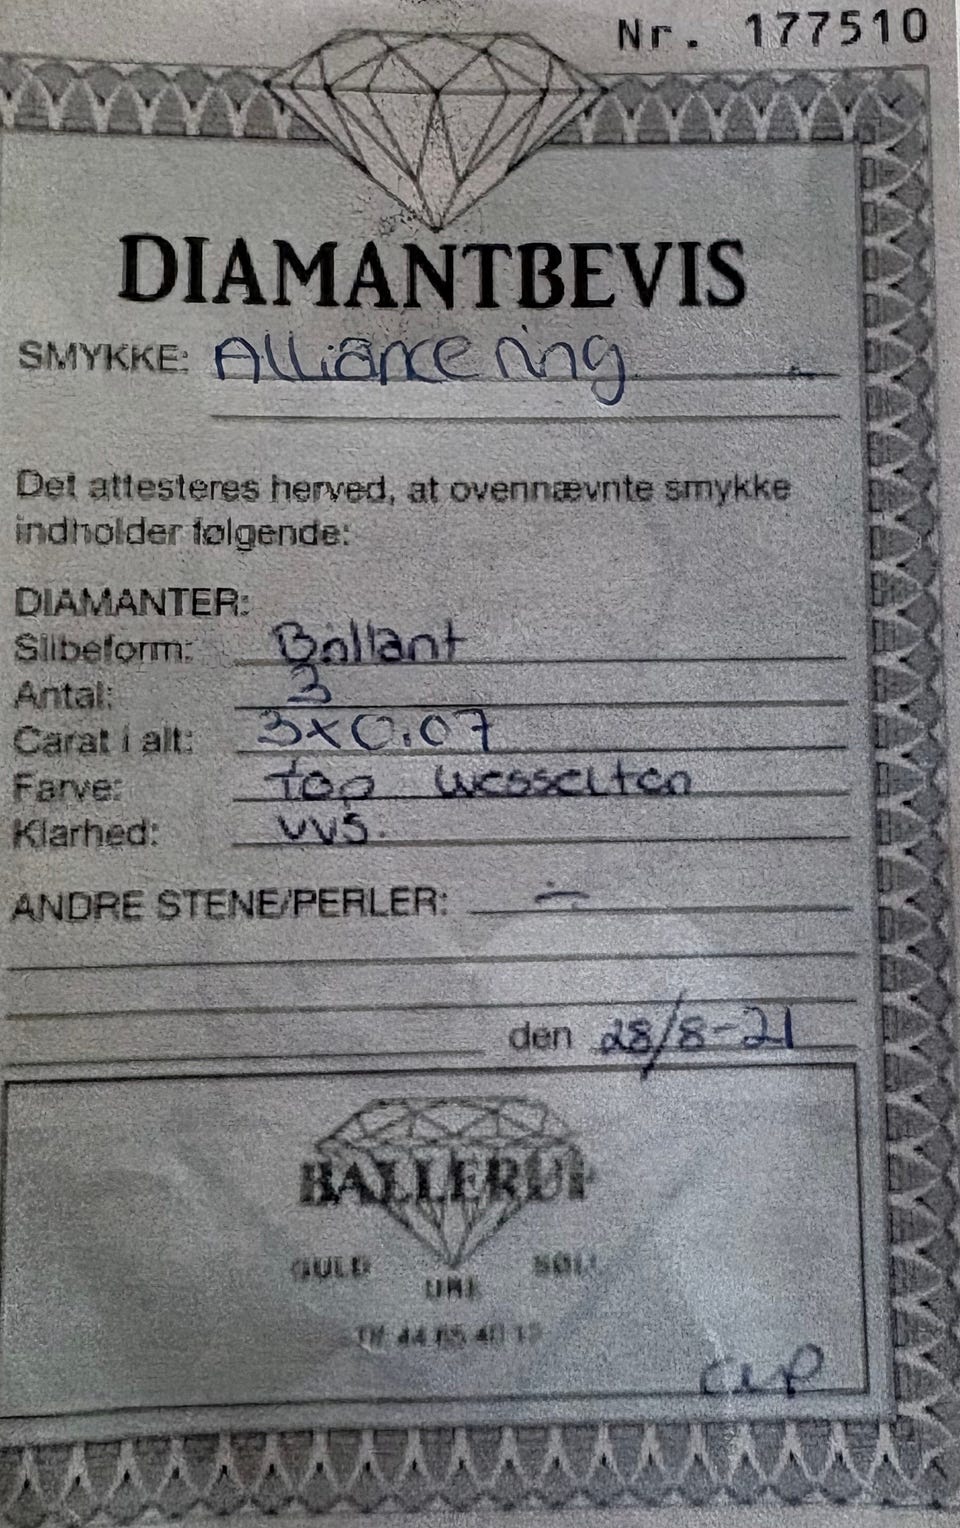 Nr. 177510
DIAMANTBEVIS
SMYKKE: Alliance ring
Det attesteres herved, at ovennævnte smykke
indholder følgende:
DIAMANTER:
Slibeform: Brillant
Antal: 3
Carat i alt: 3x0.07
Farve: top wesselton
Klarhed: VVS.
ANDRE STENE/PERLER: ÷
den 28/8-21
BALLERUP
GULD SØLV
URE